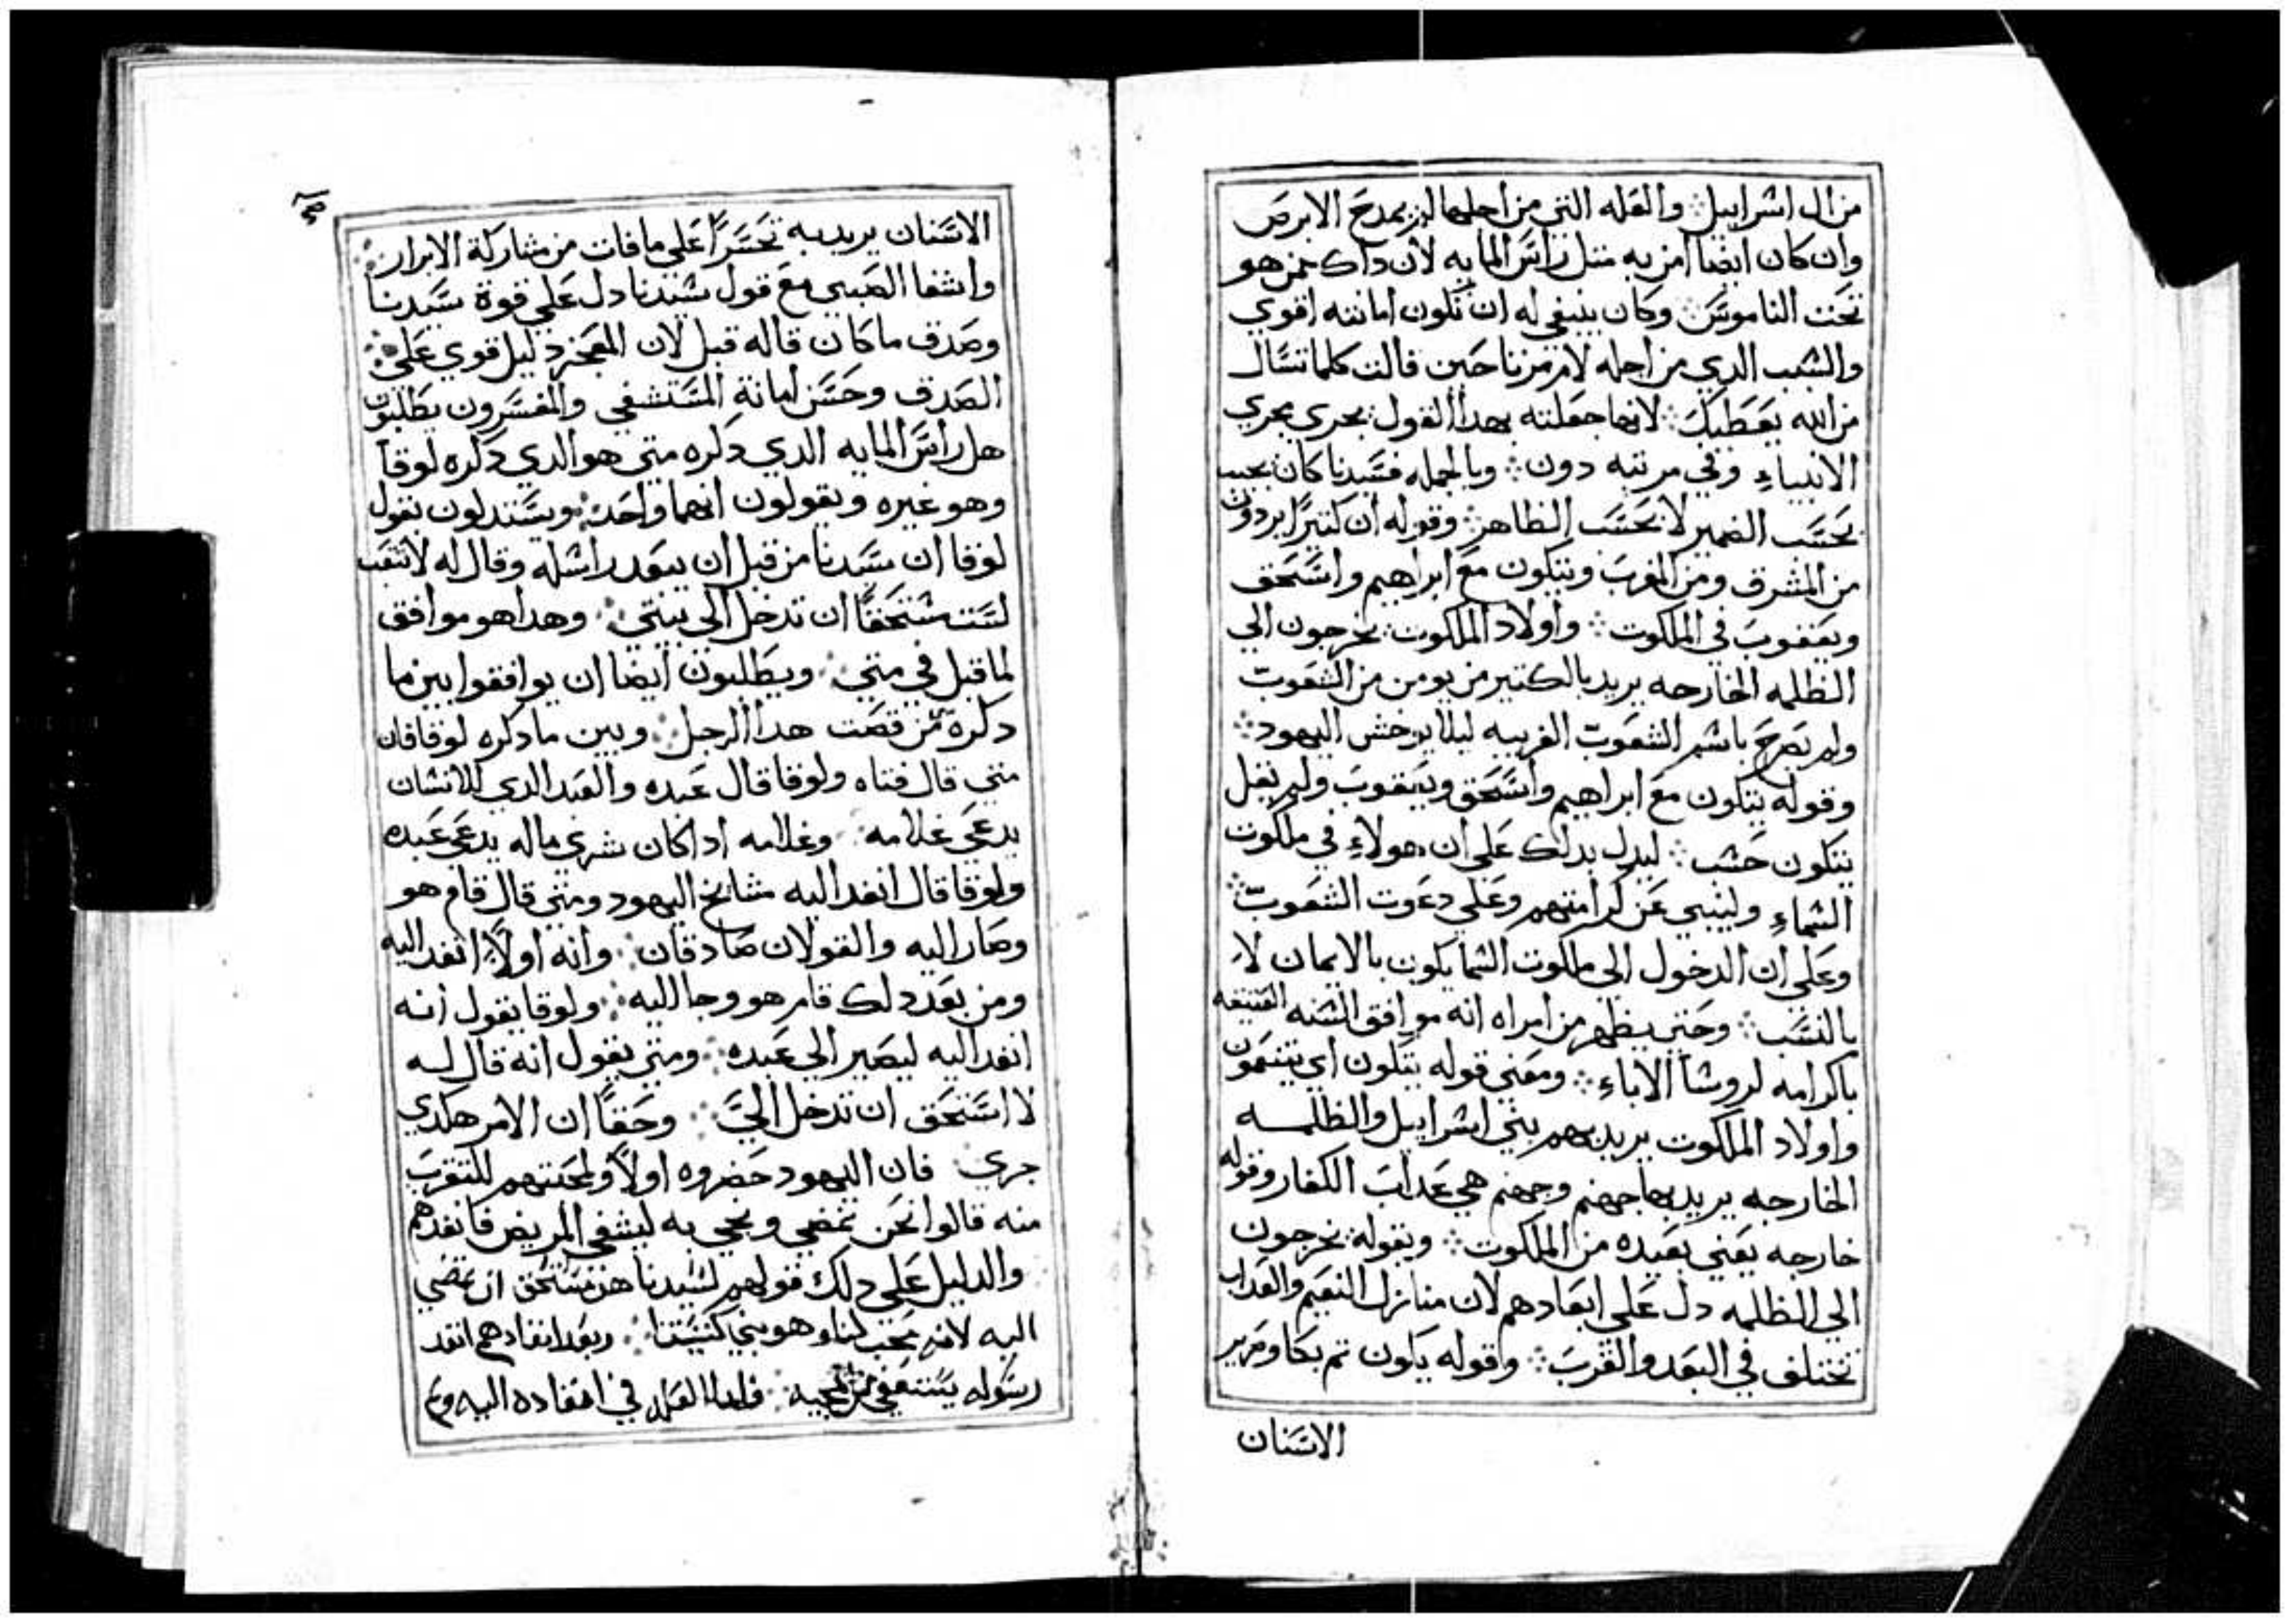 من ال اسراييل ⁘ والعله التي من اجلها لم يمدح الابرص
وان كان ايضا امن به مثل راس المايه لان داك ممن هو
تحت الناموس ⁘ وكان ينبغي له ان تكون امانته اقوي
والسبب الدي من اجله لام مرتا حين قالت كلما تسال
من الله يعطيك ⁘ لانها جعلته بهدا القول يجري مجري
الانبياء وفي مرتبه دون ⁘ وبالجمله فسيدنا كان يجيب
بحسب الضمير لا بحسب الظاهر ⁘ وقوله ان كتيرا يردون
من المشرق ومن المغرب ويتكون مع ابراهيم واسحق
ويعقوب في الملكوت ⁘ واولاد الملكوت يخرجون الي
الظلمه الخارجه يريد بالكتير من يومن من الشعوب
ولم يصرح باسم الشعوب الغريبه ليلا يوخش اليهود ⁘
وقوله يتكون مع ابراهيم واسحق ويعقوب ولم يقل
يتكون حسب ⁘ ليدل بدلك علي ان هولاء في ملكوت
السماء ولينبي عن كرامتهم وعلي دعوت الشعوب ⁘
وعلي ان الدخول الي ملكوت السما يكون بالايمان لا
بالنسب ⁘ وحتي يظهر من امراه انه موافق السنه العتيقه
باكرامه لروسا الاباء ⁘ ومعني قوله يتكون اي يتنعمون
واولاد الملكوت يريد بهم بني اسراييل والظلمه
الخارجه يريد بها جهنم وجهنم هي عداب الكفار وقوله
خارجه يعني بعيده من الملكوت ⁘ وبقوله يخرجون
الي الظلمه دل علي ابعادهم لان منازل النعيم والعداب
تختلف في البعد والقرب ⁘ وقوله يكون تم بكا وصرير
الاسنان
الاسنان يريد به تحسرا علي ما فات من مشاركة الابرار ⁘
واشفا الصبي مع قول سيدنا دل علي قوة سيدنا
وصدق ما كان قاله قبل لان المعجز دليل قوي علي ⁘
الصدق وحسن امانة المستشفي والمفسرون يطلبون
هل راس المايه الدي دكره متي هو الدي دكره لوقا
وهو غيره ويقولون انهما واحد ⁘ ويستدلون بقول
لوقا ان سيدنا من قبل ان يبعد راسله وقال له لا تتعب
لست مستحقا ان تدخل الي بيتي ⁘ وهدا هو موافق
لما قيل في متي ⁘ ويطلبون ايضا ان يوافقوا بين ما
دكره من قصت هدا الرجل ⁘ وبين ما دكره لوقا فان
متي قال فتاه ولوقا قال عبده والعبد الدي للانسان
يدعي غلامه ⁘ وغلامه ادا كان شري ماله يدعي عبده
ولوقا قال انفد اليه مشايخ اليهود ومتي قال قام هو
وصار اليه والقولان صادقان ⁘ وانه اولا انفد اليه
ومن بعد دلك قام هو وجا اليه ⁘ ولوقا يقول انه
انفد اليه ليصير الي عبده ⁘ ومتي يقول انه قال له
لا استحق ان تدخل الي ⁘ وحقا ان الامر هكدي
جري ⁘ فان اليهود حضروه اولا ولمحبتهم للتقرب
منه قالوا نحن نمضي ونجي به ليشفي المريض فانفدهم
والدليل علي دلك قولهم لسيدنا هو مستحق ان تمضي
اليه لانه محب لنا وهو بني كنيستنا ⁘ وبعد انفادهم انفد
رسوله يستعفي من مجيه ⁘ فاما العله في انفاده اليه